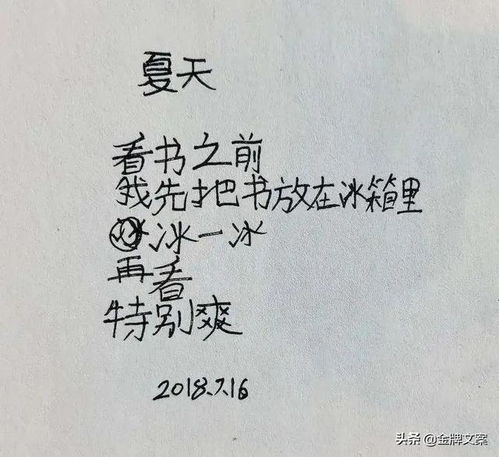 夏天
看书之前
我先把书放在冰箱里
冰一冰
再看
特别爽
2018.7.16
头条 @金牌文案